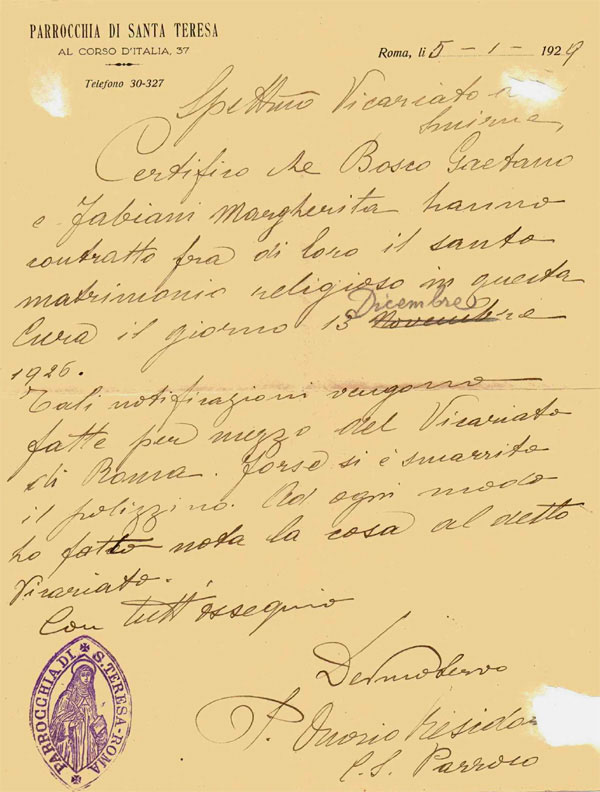 PARROCCHIA DI SANTA TERESA
AL CORSO D'ITALIA, 37
Telefono 30-327
Roma, li 5 - 1 - 1929
Spett.mo Vicariato
Smirne,
Certifico che Bosco Gaetano
e Fabiani Margherita hanno
contratto fra di loro il santo
matrimonio religioso in questa
Dicembre
Cura il giorno 13 Novembre
1926.
Tali notificazioni vengono
fatte per mezzo del Vicariato
di Roma. Forse si è smarrito
il polizzino. Ad ogni modo
ho fatto nota la cosa al detto
Vicariato.
Con tutt'ossequio
Dev.mo servo
P.
C. S. Parroco
PARROCCHIA DI S. TERESA - ROMA